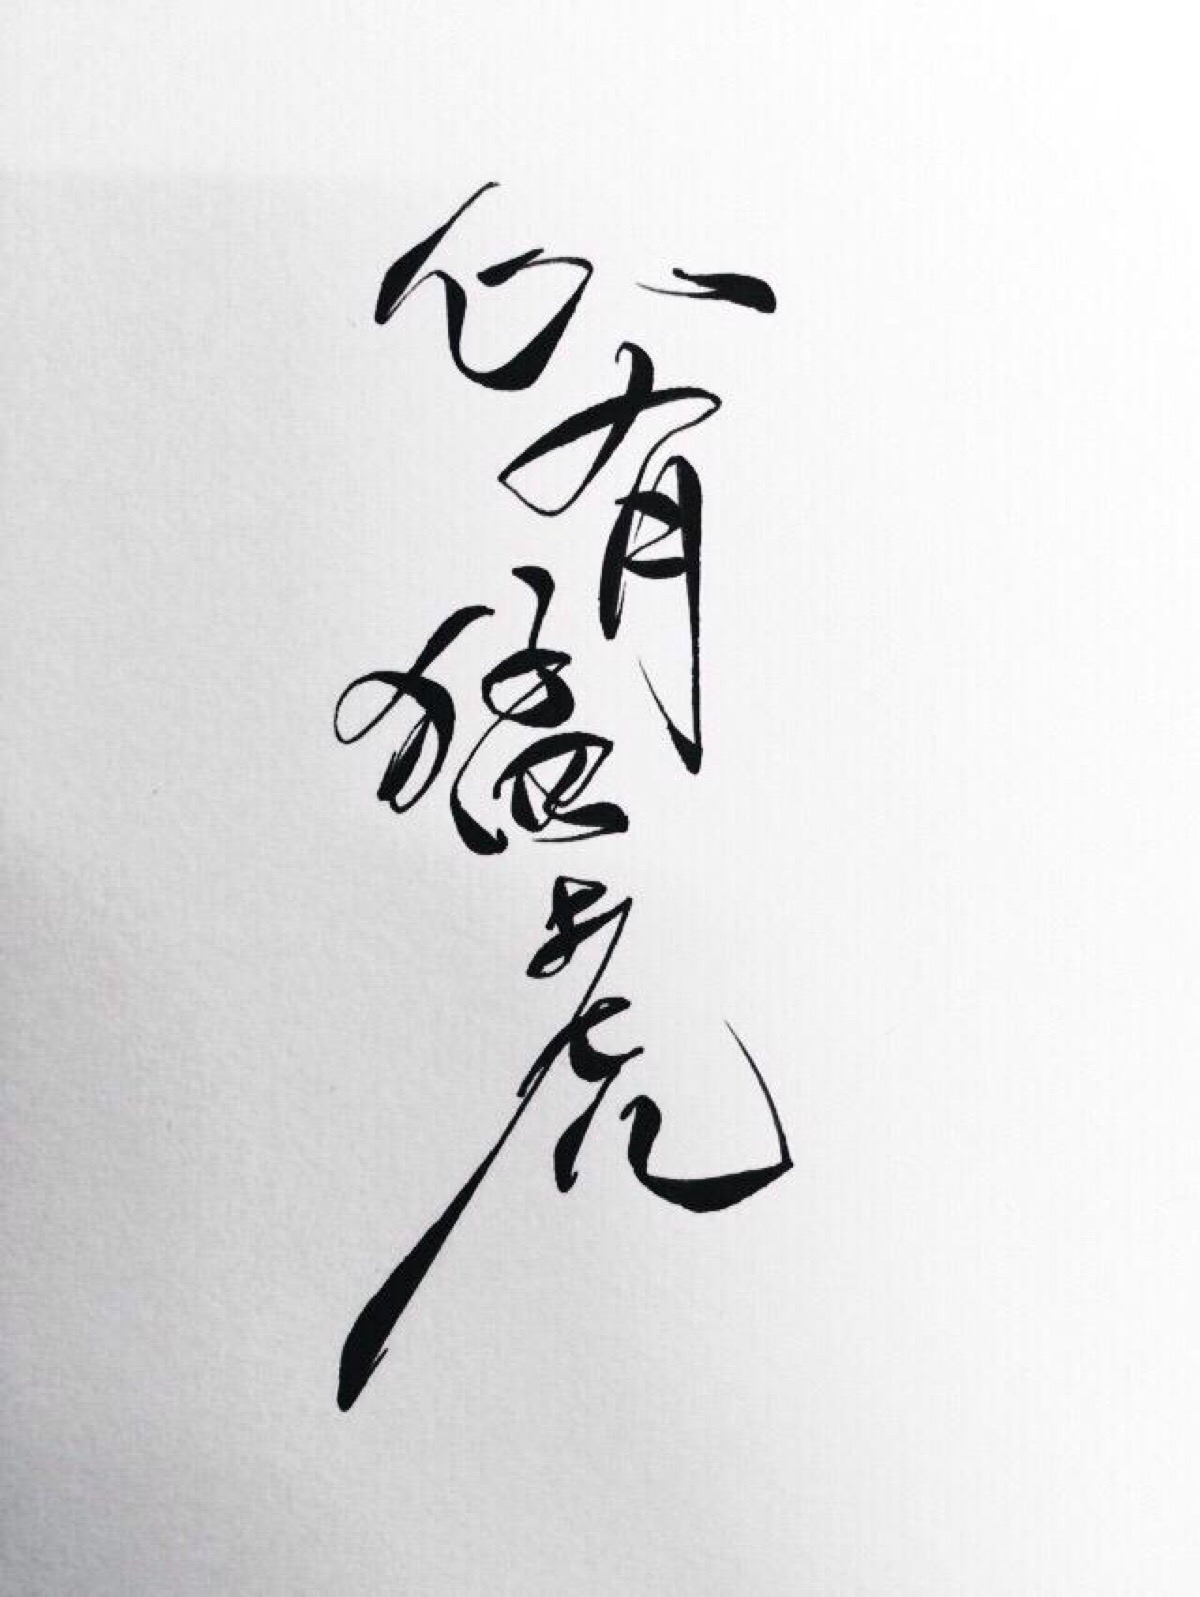 心有猛虎